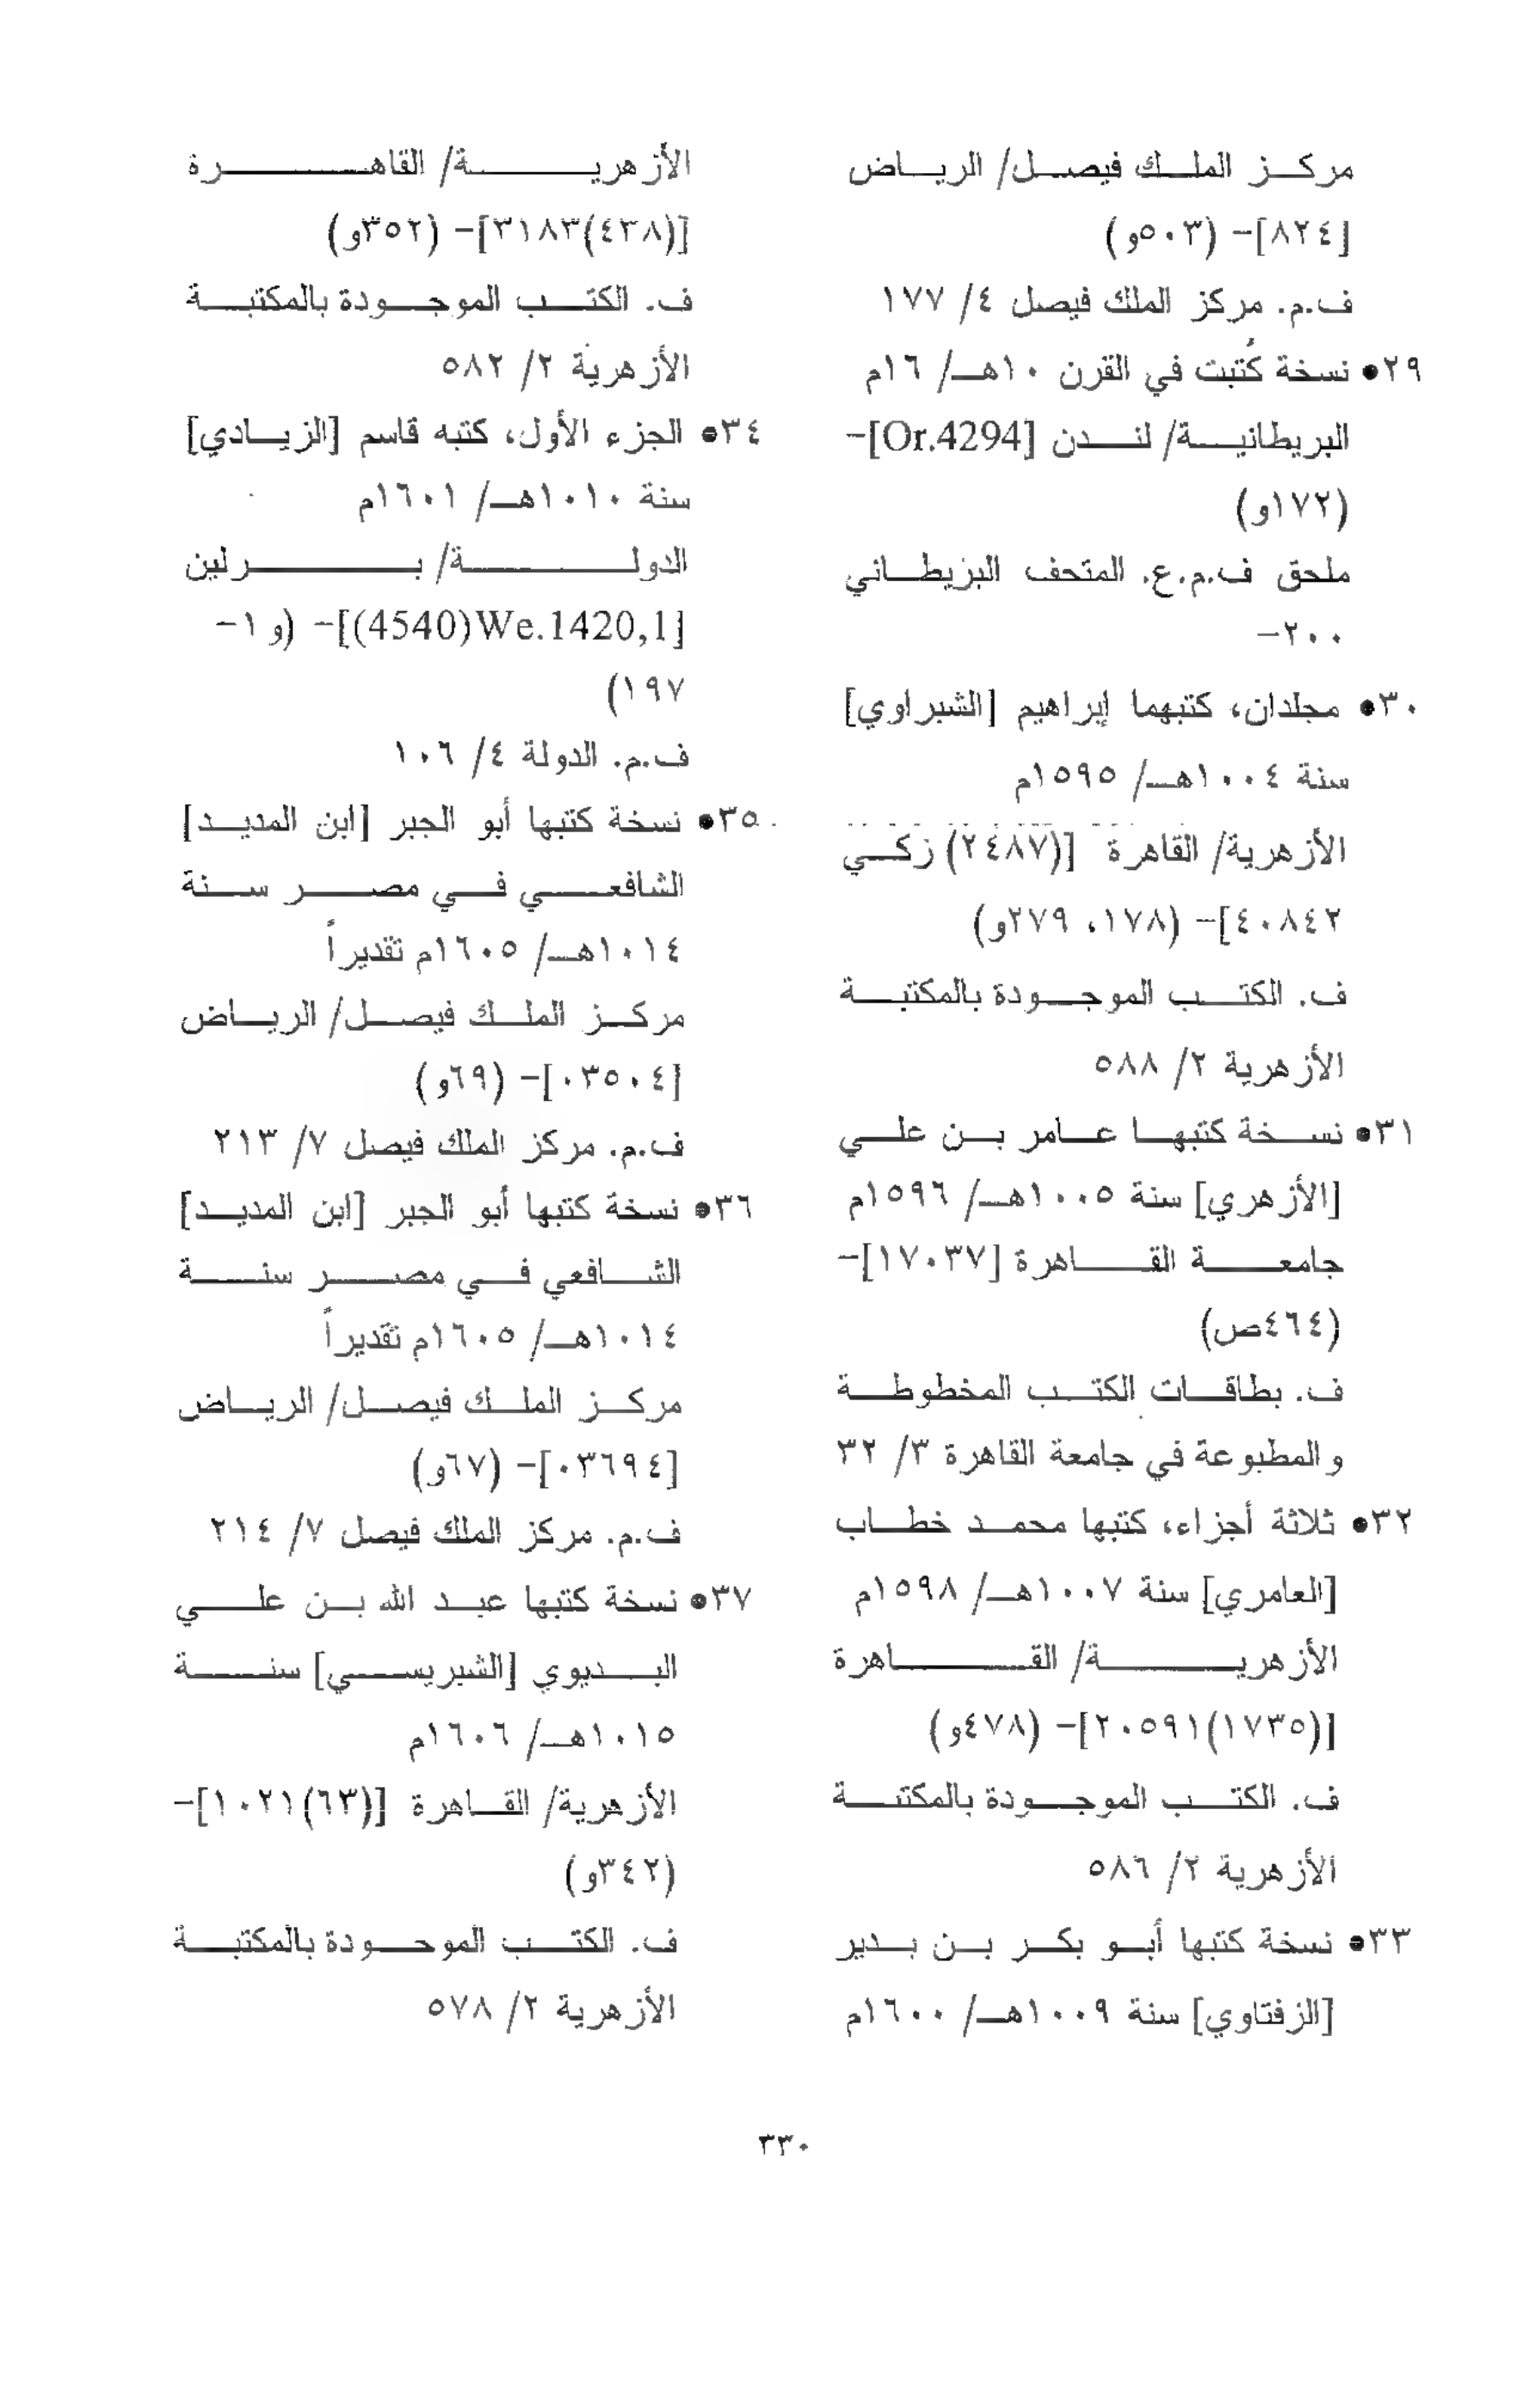 مركز الملك فيصل/ الرياض
[٨٢٤]- (٥٠٣و)
ف.م. مركز الملك فيصل ٤/ ١٧٧
٢٩• نسخة كُتبت في القرن ١٠هـ/ ١٦م
البريطانية/ لندن [Or.4294]-
(١٧٢و)
ملحق ف.م.ع. المتحف البريطاني
٢٠٠-
٣٠• مجلدان، كتبهما إبراهيم [الشبراوي]
سنة ١٠٠٤هـ/ ١٥٩٥م
الأزهرية/ القاهرة [(٢٤٨٧) زكي
٤٠٨٤٢]- (١٧٨، ٢٧٩و)
ف. الكتب الموجودة بالمكتبة
الأزهرية ٢/ ٥٨٨
٣١• نسخة كتبها عامر بن علي
[الأزهري] سنة ١٠٠٥هـ/ ١٥٩٦م
جامعة القاهرة [١٧٠٣٧]-
(٤٦٤ص)
ف. بطاقات الكتب المخطوطة
والمطبوعة في جامعة القاهرة ٣/ ٣٢
٣٢• ثلاثة أجزاء، كتبها محمد خطاب
[العامري] سنة ١٠٠٧هـ/ ١٥٩٨م
الأزهرية/ القاهرة
[(١٧٣٥)٢٠٥٩١]- (٤٧٨و)
ف. الكتب الموجودة بالمكتبة
الأزهرية ٢/ ٥٨٦
٣٣• نسخة كتبها أبو بكر بن بدير
[الزفتاوي] سنة ١٠٠٩هـ/ ١٦٠٠م
الأزهرية/ القاهرة
[(٤٣٨)٣١٨٣]- (٣٥٢و)
ف. الكتب الموجودة بالمكتبة
الأزهرية ٢/ ٥٨٢
٣٤• الجزء الأول، كتبه قاسم [الزيادي]
سنة ١٠١٠هـ/ ١٦٠١م
الدولة/ برلين
[We.1420,1(4540)]- (و ١-
١٩٧)
ف.م. الدولة ٤/ ١٠٦
٣٥• نسخة كتبها أبو الجبر [ابن المديد]
الشافعي في مصر سنة
١٠١٤هـ/ ١٦٠٥م تقديراً
مركز الملك فيصل/ الرياض
[٠٣٥٠٤]- (٦٩و)
ف.م. مركز الملك فيصل ٧/ ٢١٣
٣٦• نسخة كتبها أبو الجبر [ابن المديد]
الشافعي في مصر سنة
١٠١٤هـ/ ١٦٠٥م تقديراً
مركز الملك فيصل/ الرياض
[٠٣٦٩٤]- (٦٧و)
ف.م. مركز الملك فيصل ٧/ ٢١٤
٣٧• نسخة كتبها عبد الله بن علي
البديوي [الشبريسي] سنة
١٠١٥هـ/ ١٦٠٦م
الأزهرية/ القاهرة [(٦٣)١٠٢١]-
(٣٤٢و)
ف. الكتب الموجودة بالمكتبة
الأزهرية ٢/ ٥٧٨
٣٣٠